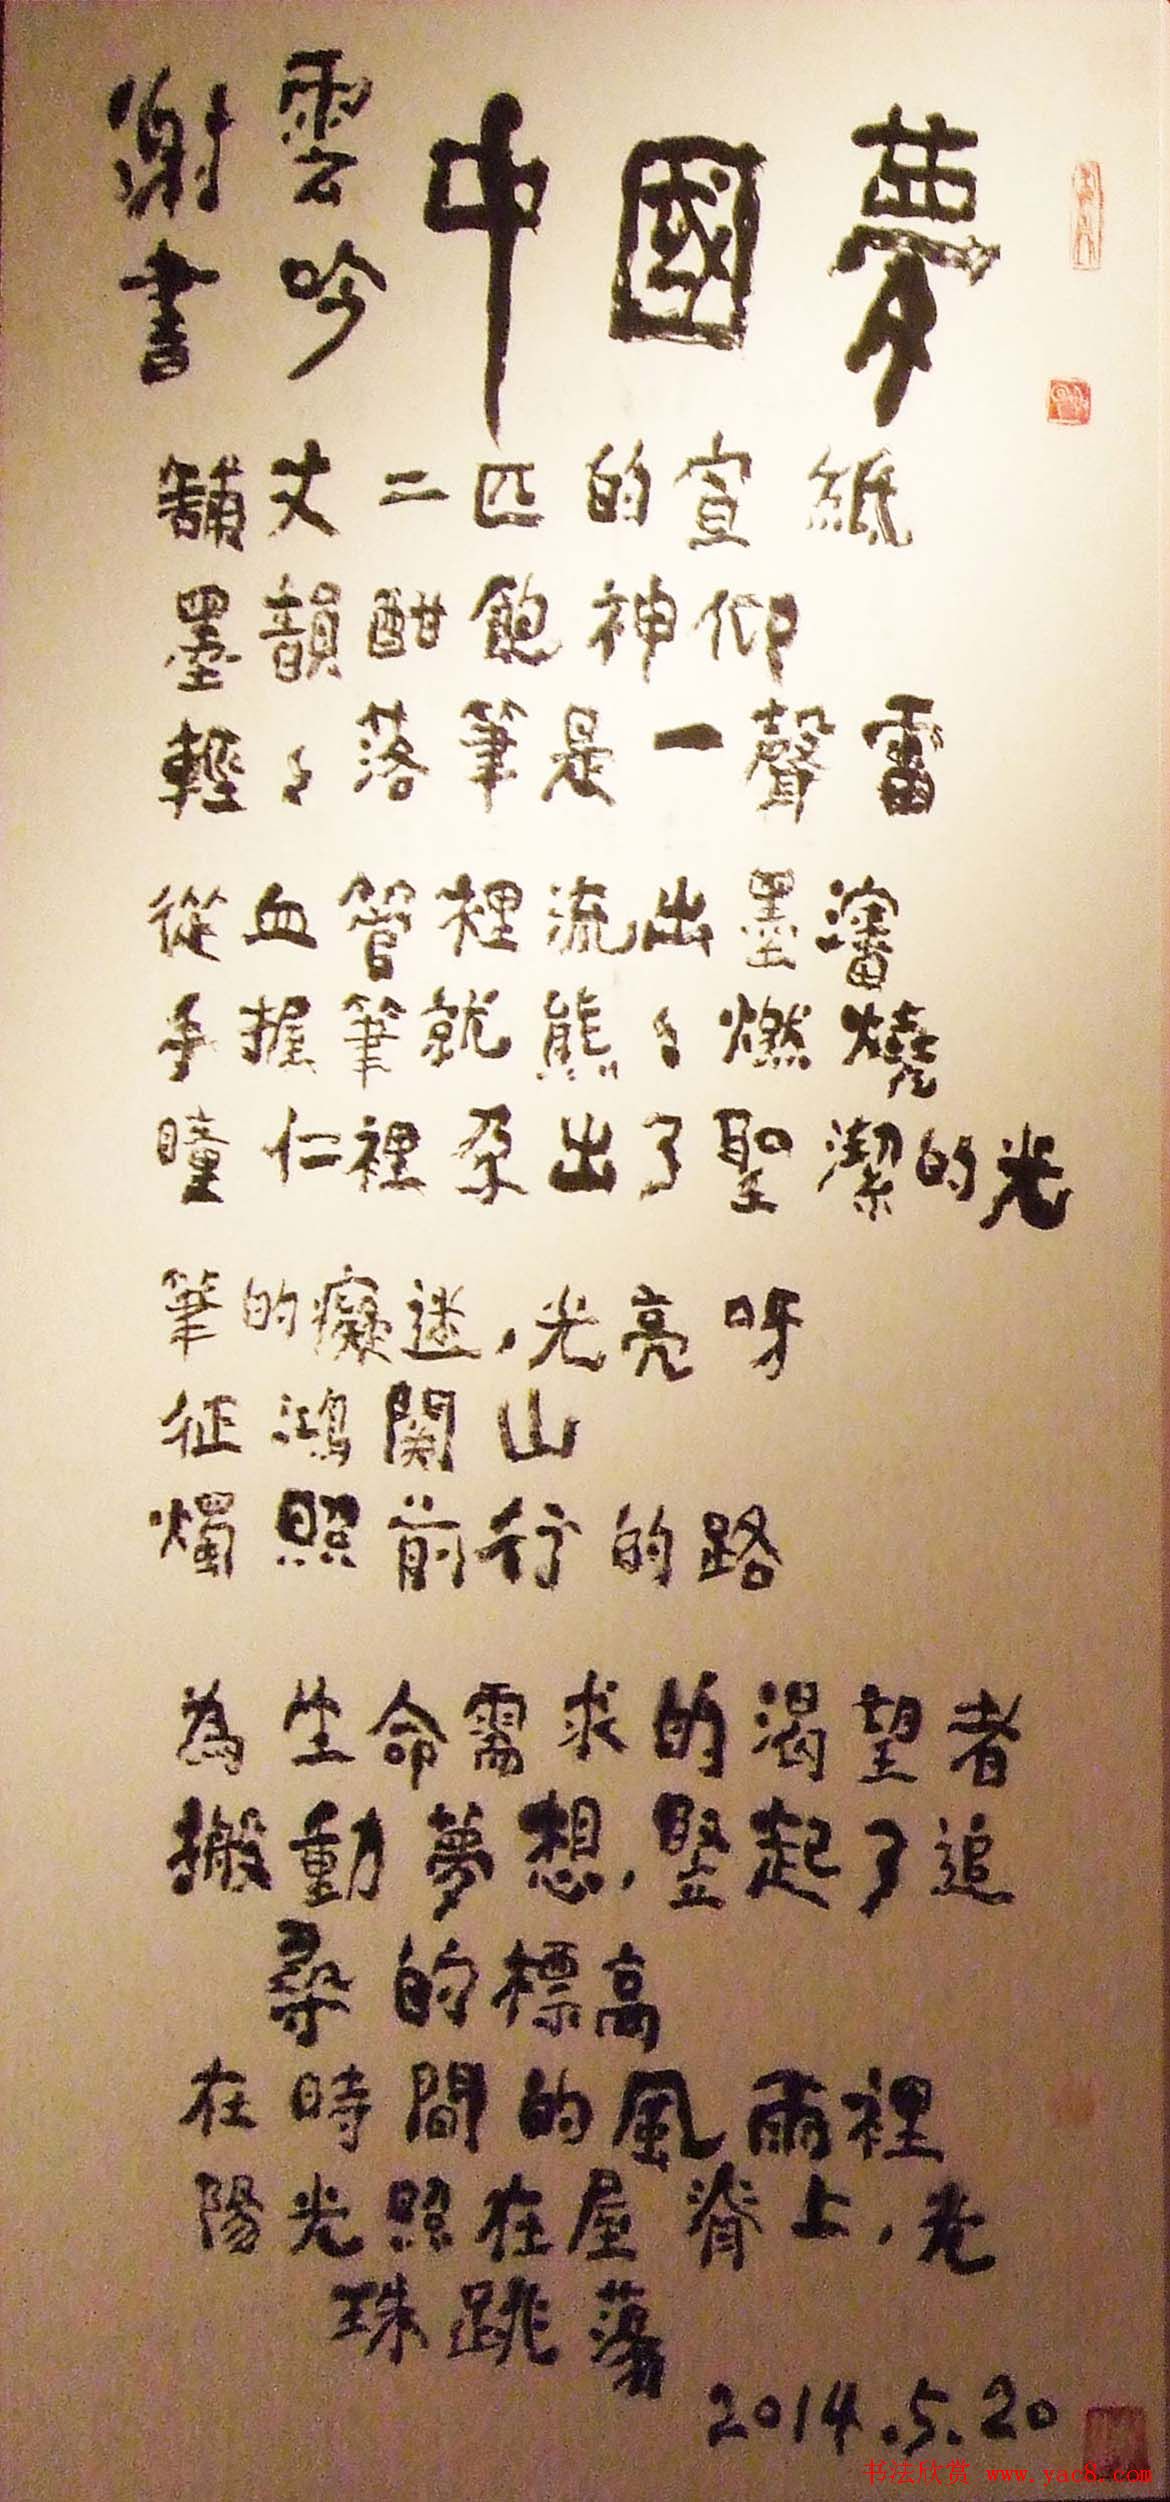 中國夢
雲吟
謝書
舖丈二匹的宣紙
墨韻酣飽神仰
輕々落筆是一聲雷
從血管裡流出墨瀋
手握筆就熊々燃燒
瞳仁裡孕出了聖潔的光
筆的癡迷，光亮呀
征鴻関山
燭照前行的路
為生命需求的渴望者
搬動夢想，竪起了追
尋的標高
在時間的風雨裡
陽光照在屋脊上，光
珠跳蕩
2014.5.20
书法欣赏 www.yac8.com